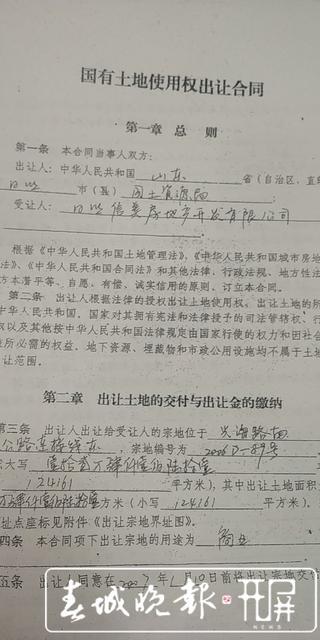 国有土地使用权出让合同
第一章 总 则
第一条 本合同当事人双方:
出让人:中华人民共和国 山东 省(自治区、直辖
日照 市(县) 国土资源局;
受让人: 日照信美房地产开发有限公司
根据《中华人民共和国土地管理法》、《中华人民共和国城市房地
法》、《中华人民共和国合同法》和其他法律、行政法规、地方性法
方本着平等、自愿、有偿、诚实信用的原则、订立本合同。
第二条 出让人根据法律的授权出让土地使用权,出让土地的所
中华人民共和国。国家对其拥有宪法和法律授予的司法管辖权、行
权以及其他按中华人民共和国法律规定由国家行使的权力和因社会
益所必需的权益。地下资源、埋藏物和市政公用设施均不属于土地
出让范围。
第二章 出让土地的交付与出让金的缴纳
第三条 出让人出让给受让人的宗地位于 兴海路西
公路 东,宗地编号为 2006D-89号
大写 壹拾贰万肆仟壹佰陆拾壹
124161 平方米),其中出让土地面
万肆仟壹佰陆拾壹 方米(小写 124161 平方米)。
址点座标见附件《出让宗地界址图》。
四条 本合同项下出让宗地的用途为 商业
五条 出让人同意在2007年1月10日前将出让宗地交付
春城晚报 开屏